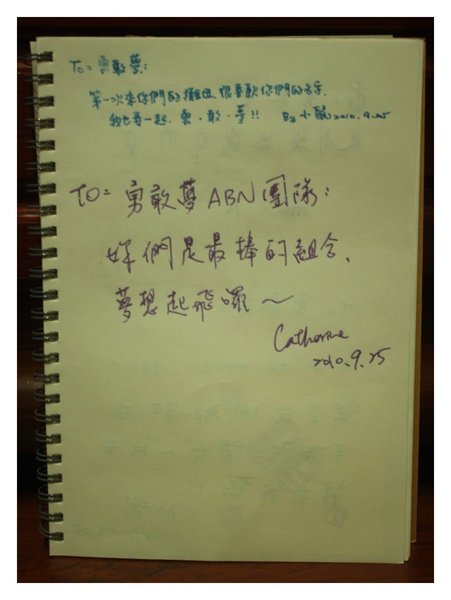 To: 勇敢夢:
第一次來你們的攤位,很喜歡你們的分享
我也要一起 勇.敢.夢!! By 小 2010.9.25
TO: 勇敢夢ABN團隊:
妳們是最棒的組合,
夢想起飛囉~
Catherine
2010.9.25